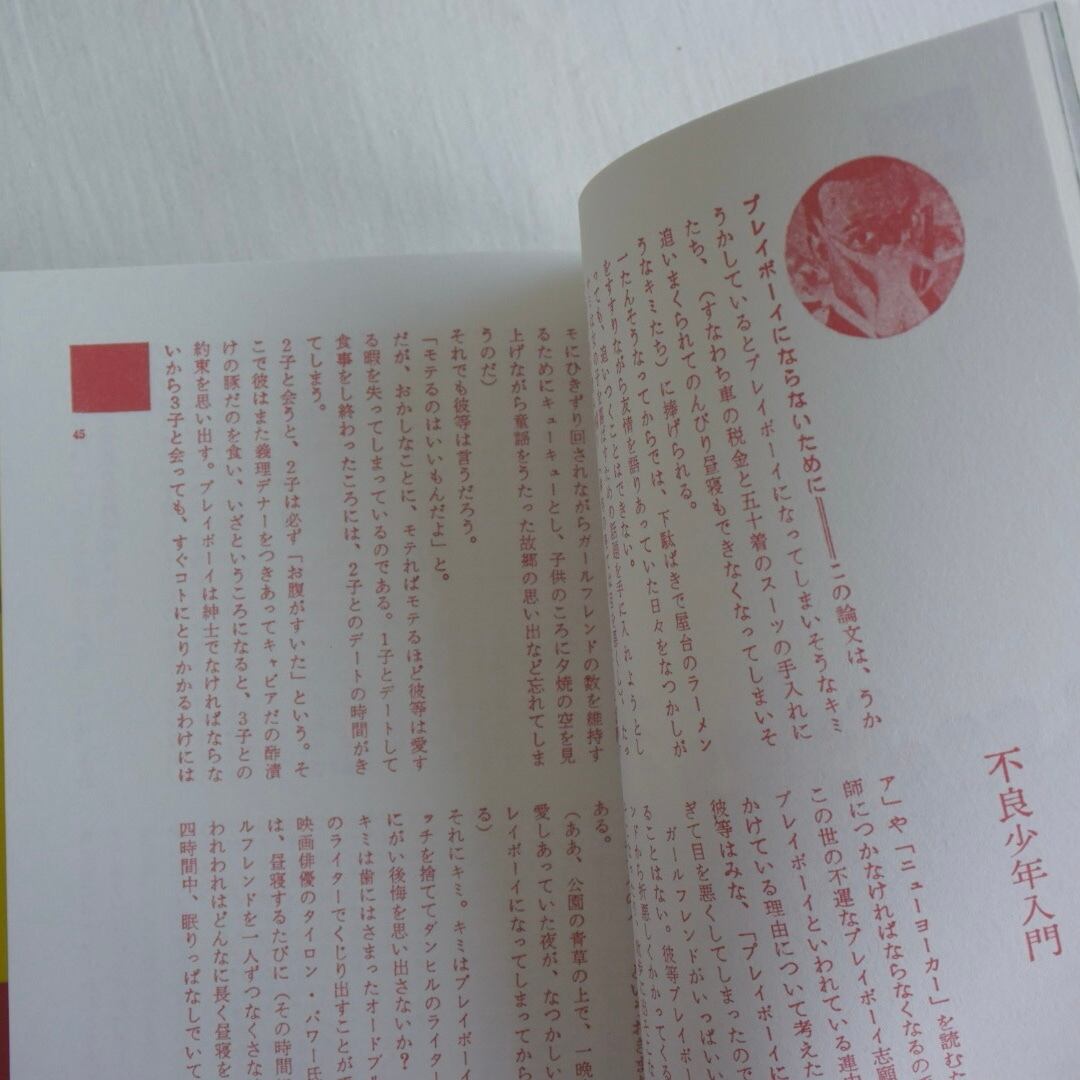 不良少年入門
プレイボーイにならないために――この論文は、うか
うかしているとプレイボーイになってしまいそうなキミ
たち、(すなわち車の税金と五十着のスーツの手入れに
追いまくられてのんびり昼寝もできなくなってしまいそ
うなキミたち)に捧げられる。
一たんそうなってからでは、下駄ばきで屋台のラーメン
をすすりながら友情を語りあっていた日々をなつかしが
っても、追いつくことはできない。
ア」や「ニューヨーカー」を読むた
師につかなければならなくなるの
この世の不運なプレイボーイ志願
プレイボーイといわれている連中
かけている理由について考えた
彼等はみな、「プレイボーイに
ぎて目を悪くしてしまったので
ガールフレンドがいっぱいい
ることはない。彼等プレイボー
モにひきずり回されながらガールフレンドの数を維持す
るためにキューキューとし、子供のころに夕焼の空を見
上げながら童謡をうたった故郷の思い出など忘れてしま
うのだ)
それでも彼等は言うだろう。
「モテるのはいいもんだよ」と。
だが、おかしなことに、モテればモテるほど彼等は愛す
る暇を失ってしまっているのである。1子とデートして
食事をし終わったころには、2子とのデートの時間がき
てしまう。
2子と会うと、2子は必ず「お腹がすいた」という。そ
こで彼はまた義理デナーをつきあってキャビアだの酢漬
けの豚だのを食い、いざというころになると、3子との
約束を思い出す。プレイボーイは紳士でなければならな
いから3子と会っても、すぐコトにとりかかるわけには
ある。
(ああ、公園の青草の上で、一晩
愛しあっていた夜が、なつかしい
レイボーイになってしまってから
る)
それにキミ。キミはプレイボー
ッチを捨ててダンヒルのライター
にがい後悔を思い出さないか?
キミは歯にはさまったオードブル
のライターでくじり出すことが
映画俳優のタイロン・パワー氏
は、昼寝するたびに(その時間
ルフレンドを一人ずつなくさな
われわれはどんなに長く昼寝を
四時間中、眠りっぱなしでいて
45